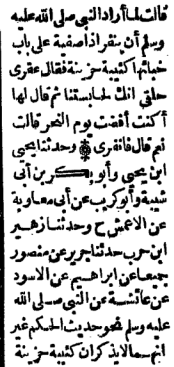 قالت لما أراد النبي صلى الله عليه
وسلم أن ينفر اذا صفية على باب
خبائها كئيبة حزينة فقال عقرى
حلقى انك لحابستنا ثم قال لها
أكنت أفضت يوم النحر قالت
نعم قال فانفرى وحدثنا يحيى
ابن يحيى وأبو بكر بن أبى
شيبة وأبو كريب عن أبى معاوية
عن الاعمش ح وحدثنا زهير
ابن حرب حدثنا جرير عن منصور
جميعا عن ابراهيم عن الاسود
عن عائشة عن النبى صلى الله
عليه وسلم نحو حديث الحكم غير
انهما لا يذكران كئيبة حزينة